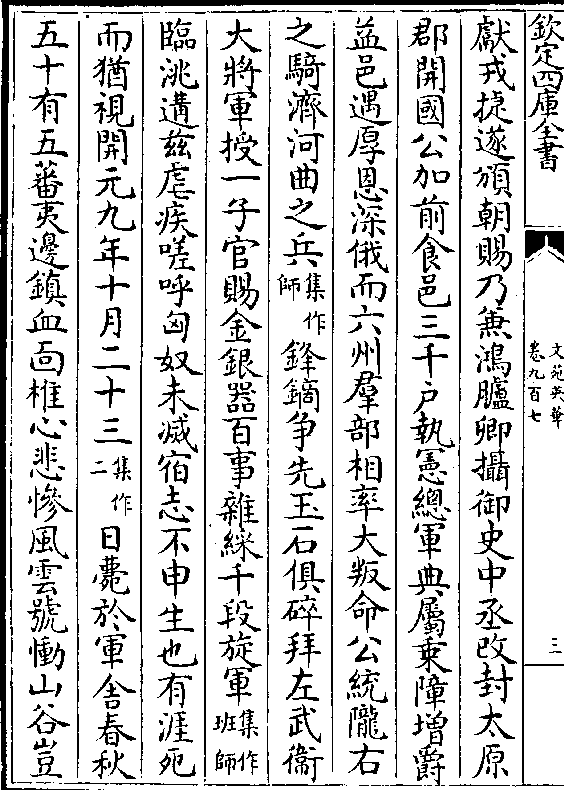 欽定四庫全書
文苑英華
卷九百七
三
獻戎捷遂頒朝賜乃兼鴻臚卿攝御史中丞改封太原
郡開國公加前食邑三千户執憲總軍典屬乗障增爵
益邑遇厚恩深俄而六州羣部相率大叛命公統隴右
之騎濟河曲之兵集作師鋒鏑争先玉石俱碎拜左武衞
大將軍授一子官賜金銀器百事雜綵千段旋軍集作班師
臨洮遘兹虐疾嗟呼匈奴未滅宿志不申生也有涯死
而猶視開元九年十月二十三集作二日薨於軍舍春秋
五十有五蕃夷邊鎮血面椎心悲慘風雲號慟山谷豈